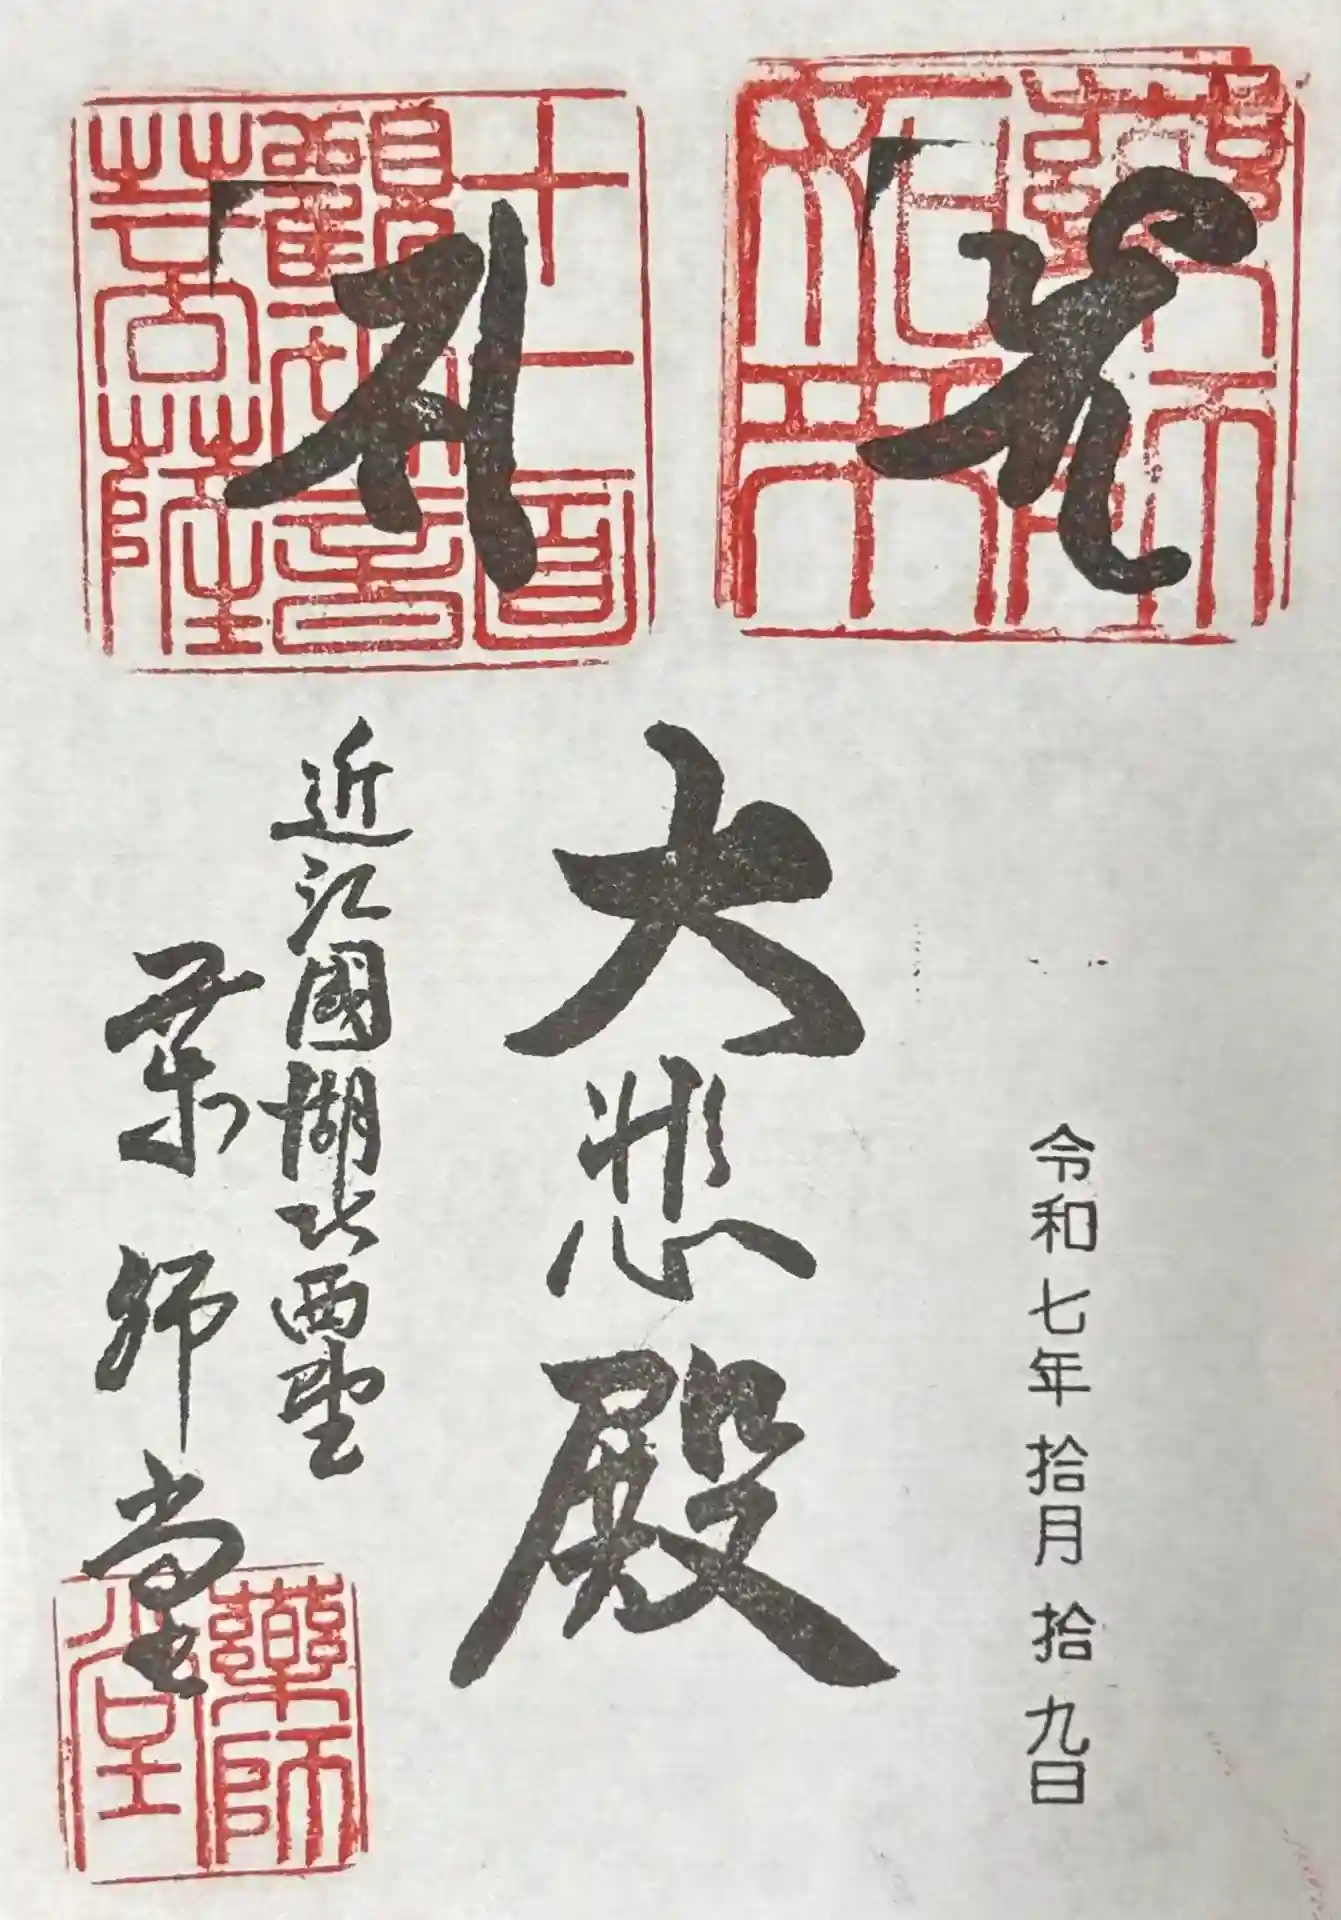 藥師
如來
令和七年拾月拾九日
大悲殿
十一面
觀世音
菩薩
近江國湖北西野
薬師堂
藥師
堂